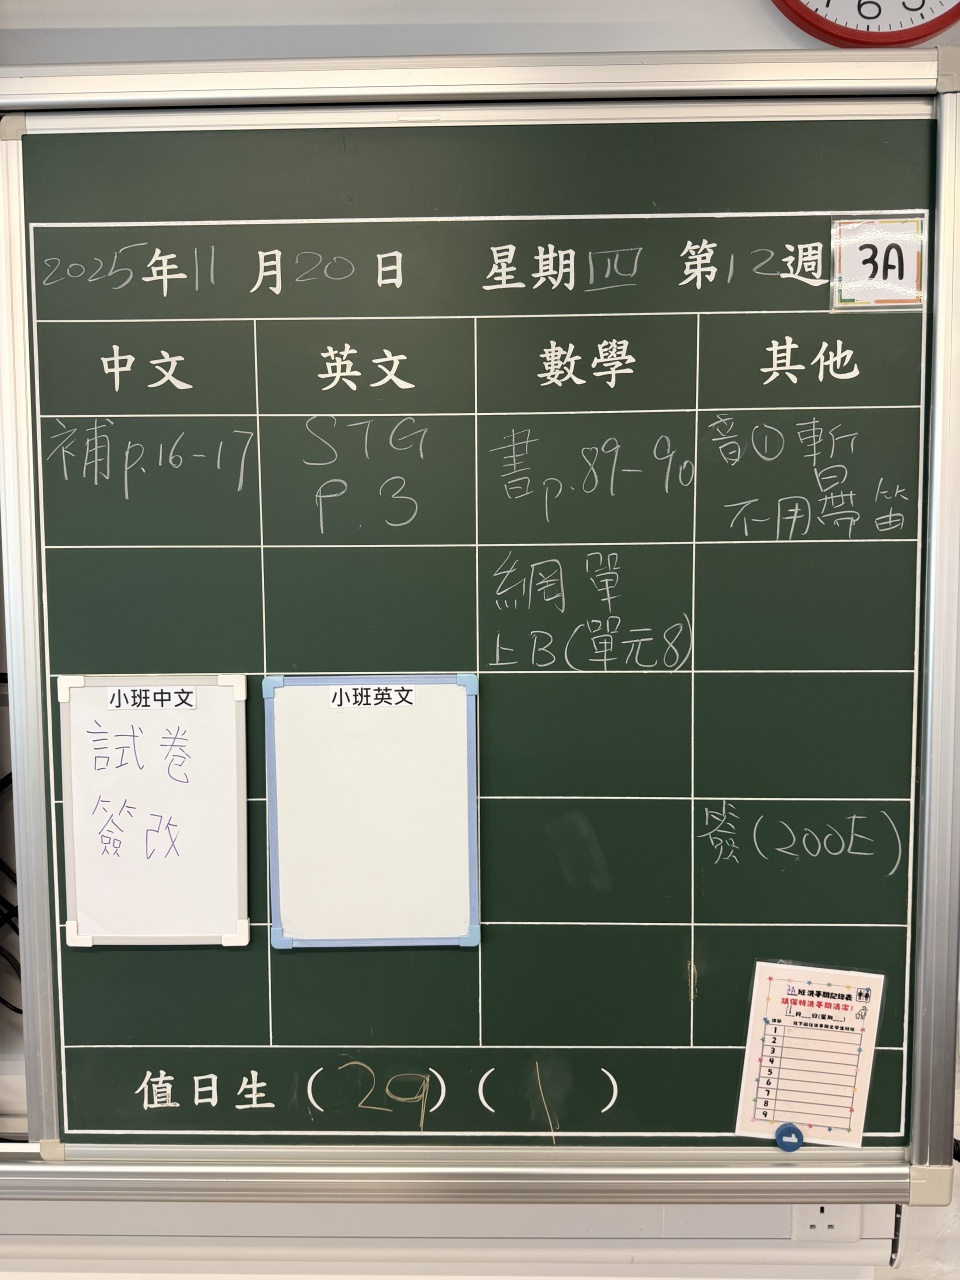 2025年11月20日 星期四 第12週 3A
中文 英文 數學 其他
補p.16-17
STG
P.3
書p.89-90
音① 暫
不用帶笛
網單
上B(單元8)
小班中文
試卷
簽改
小班英文
簽(200E)
3A班洗手間記錄表
請保持洗手間清潔!
11月 日(星期 )
1
2
3
4
5
6
7
8
9
1
值日生(29)(1)